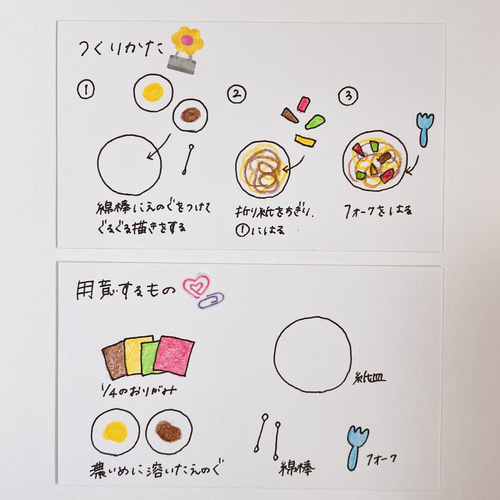 つくりかた
①
綿棒にえのぐをつけて
ぐるぐる描きをする
②
折り紙をちぎり、
①にはる
③
フォークをはる
用意するもの
1/4のおりがみ
紙皿
濃いめに溶いたえのぐ
綿棒
フォーク